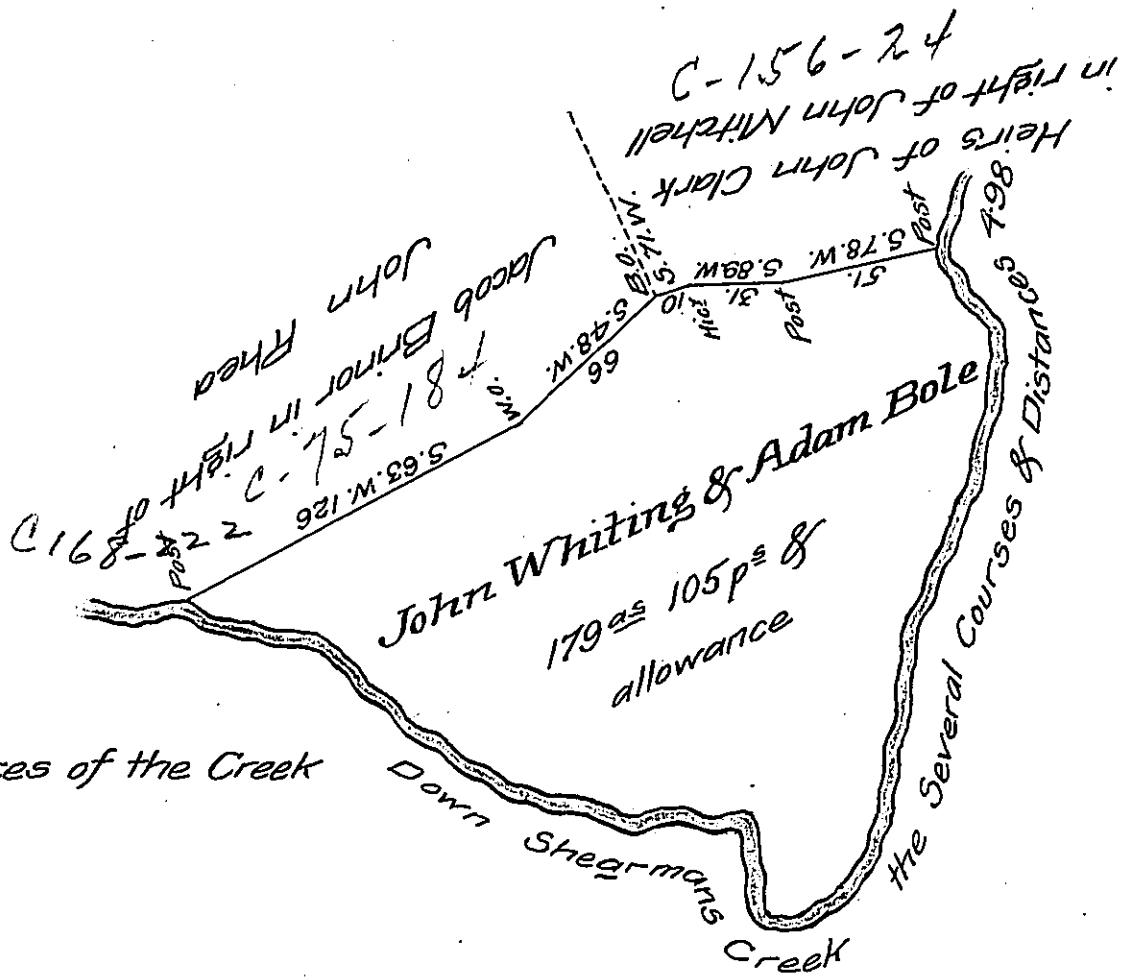 C-156-24
in right of John Mitchell
Heirs of John Clark
Jacob Brinor in right of
John Rhea
C-75-187
C168-222
Post
S.63.W.126
W.O.
S.48.W.
66
B.O.
S.71.W.
10
Hic:y
S.89.W
31.
Post
S.78.W.
51.
Post
John Whiting & Adam Bole
179 as 105 ps &
allowance
ces of the Creek
Down Shearmans Creek
the Several Courses & Distances 498